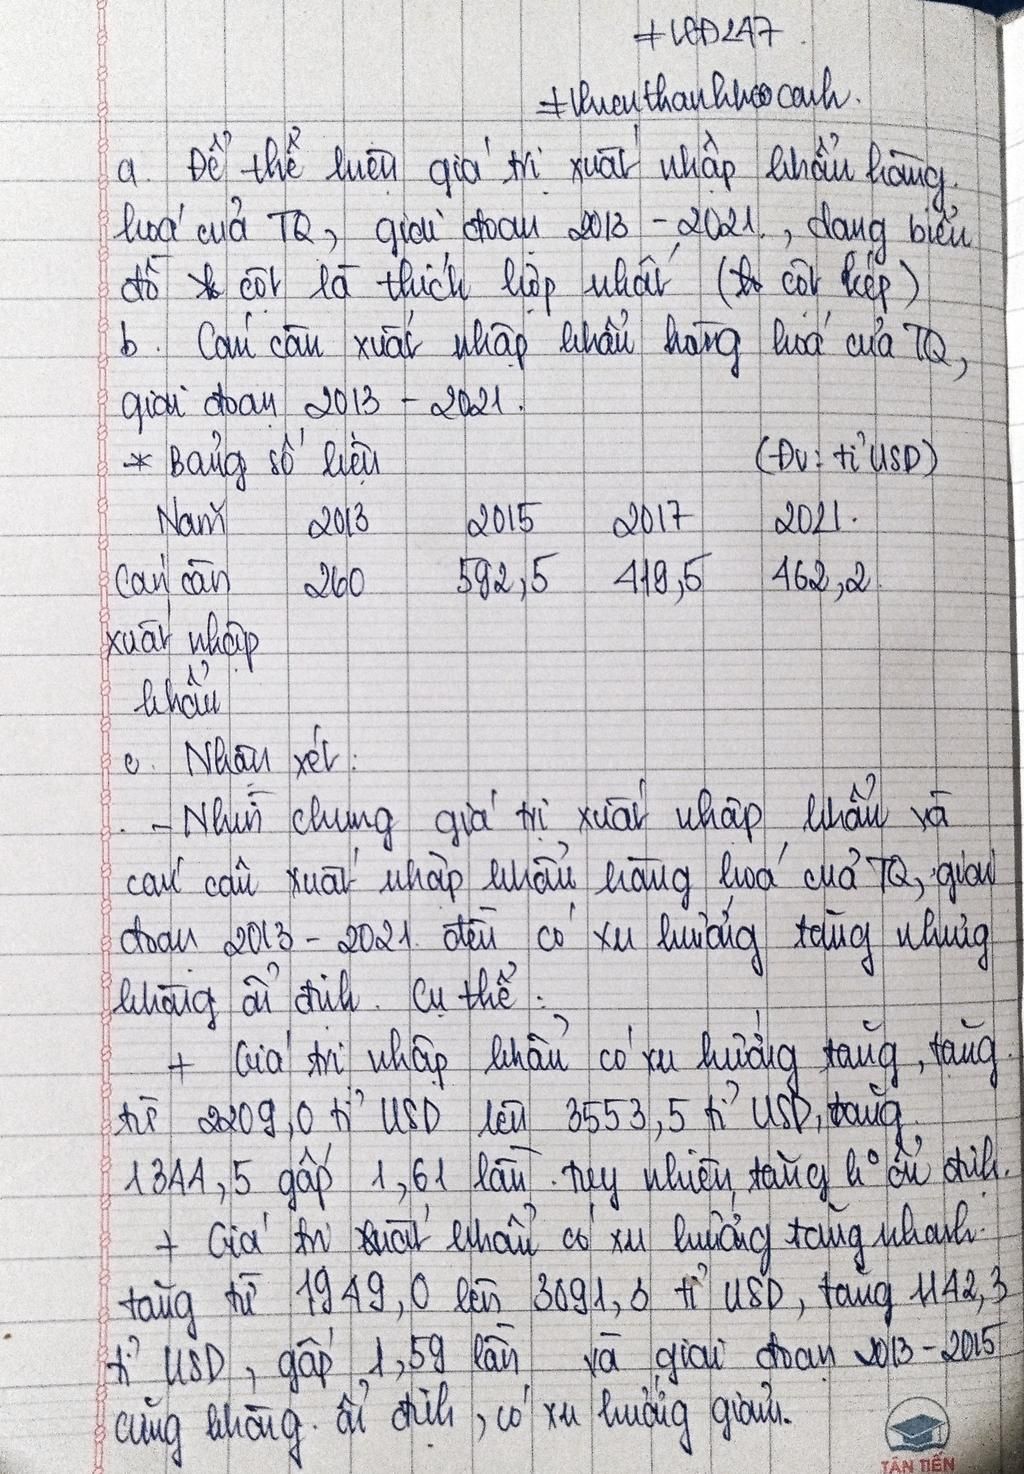 #LĐĐ247
#thucuthanhhoocanh.
a. Để thể hiện giá trị xuất nhập khẩu hàng
hoá của TQ, giai đoạn 2013 - 2021, dạng biểu
đồ cột là thích hợp nhất (cột kép)
b. Cán cân xuất nhập khẩu hàng hoá của TQ,
giai đoạn 2013 - 2021.
* Bảng số liệu (Đv: tỉ USD)
Năm 2013 2015 2017 2021.
Cán cân 260 592,5 419,5 462,2
xuất nhập
khẩu
c. Nhận xét:
- Nhìn chung giá trị xuất nhập khẩu và
cán cân xuất nhập khẩu hàng hoá của TQ, giai
đoạn 2013 - 2021 đều có xu hướng tăng nhưng
không ổn định. Cụ thể:
+ Giá trị nhập khẩu có xu hướng tăng, tăng
từ 2209,0 tỉ USD lên 3553,5 tỉ USD, tăng
1344,5 gấp 1,61 lần. tuy nhiên, tăng ko ổn định.
+ Giá trị xuất khẩu có xu hướng tăng nhanh.
tăng từ 1949,0 lên 3091,3 tỉ USD, tăng 1142,3
tỉ USD, gấp 1,59 lần và giai đoạn 2013-2015
cũng không ổn định, có xu hướng giảm.
TÂN TIẾN